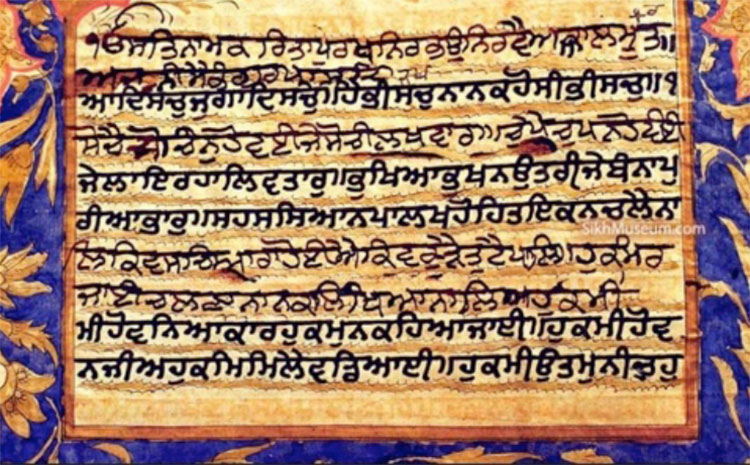 ੴਸਤਿਨਾਮਕਰਿਤਾਪੁਰਖਨਿਰਭਉਨਿਰਵੈਅਕਾਲਮੂਰਤ॥
ਆਦਿਸਚੁਜੁਗਾਦਿਸਚੁ॥ਹੈਭੀਸਚੁਨਾਨਕਹੋਸੀਭੀਸਚੁ॥੧
ਸੋਚੈਸੋਚਿਨਹੋਵਈਜੇਸੋਚੀਲਖਵਾਰ॥ਚੁਪੈਚੁਪਨਹੋਵਈ
ਜੇਲਾਇਰਹਾਲਿਵਤਾਰੁ॥ਭੁਖਿਆਭੁਖਨਉਤਰੀਜੇਬੰਨਾਪੁ
ਰੀਆਭਾਰੁ॥ਸਹਸਸਿਆਨਪਾਲਖਹੋਹਿਤਇਕਨਚਲੈਨਾ
SikhMuseum.com
ਲਿਕਿਵਸਚਿਆਰਾਹੋਈਐਕਿਵਕੂੜੈਤੁਟੈਪਾਲਿ॥ਹੁਕਮਰ
ਜਾਈਚਲਣਾਨਾਨਕਲਿਖਿਆਨਾਲਿ॥ਹੁਕਮੀ
ਮੀਹੋਵਨਿਆਕਾਰਹੁਕਮੁਨਕਹਿਆਜਾਈ॥ਹੁਕਮੀਹੋਵ
ਨਜੀਅਹੁਕਮਿਮਿਲੈਵਡਿਆਈ॥ਹੁਕਮੀਉਤਮੁਨੀਚੁਹੁ